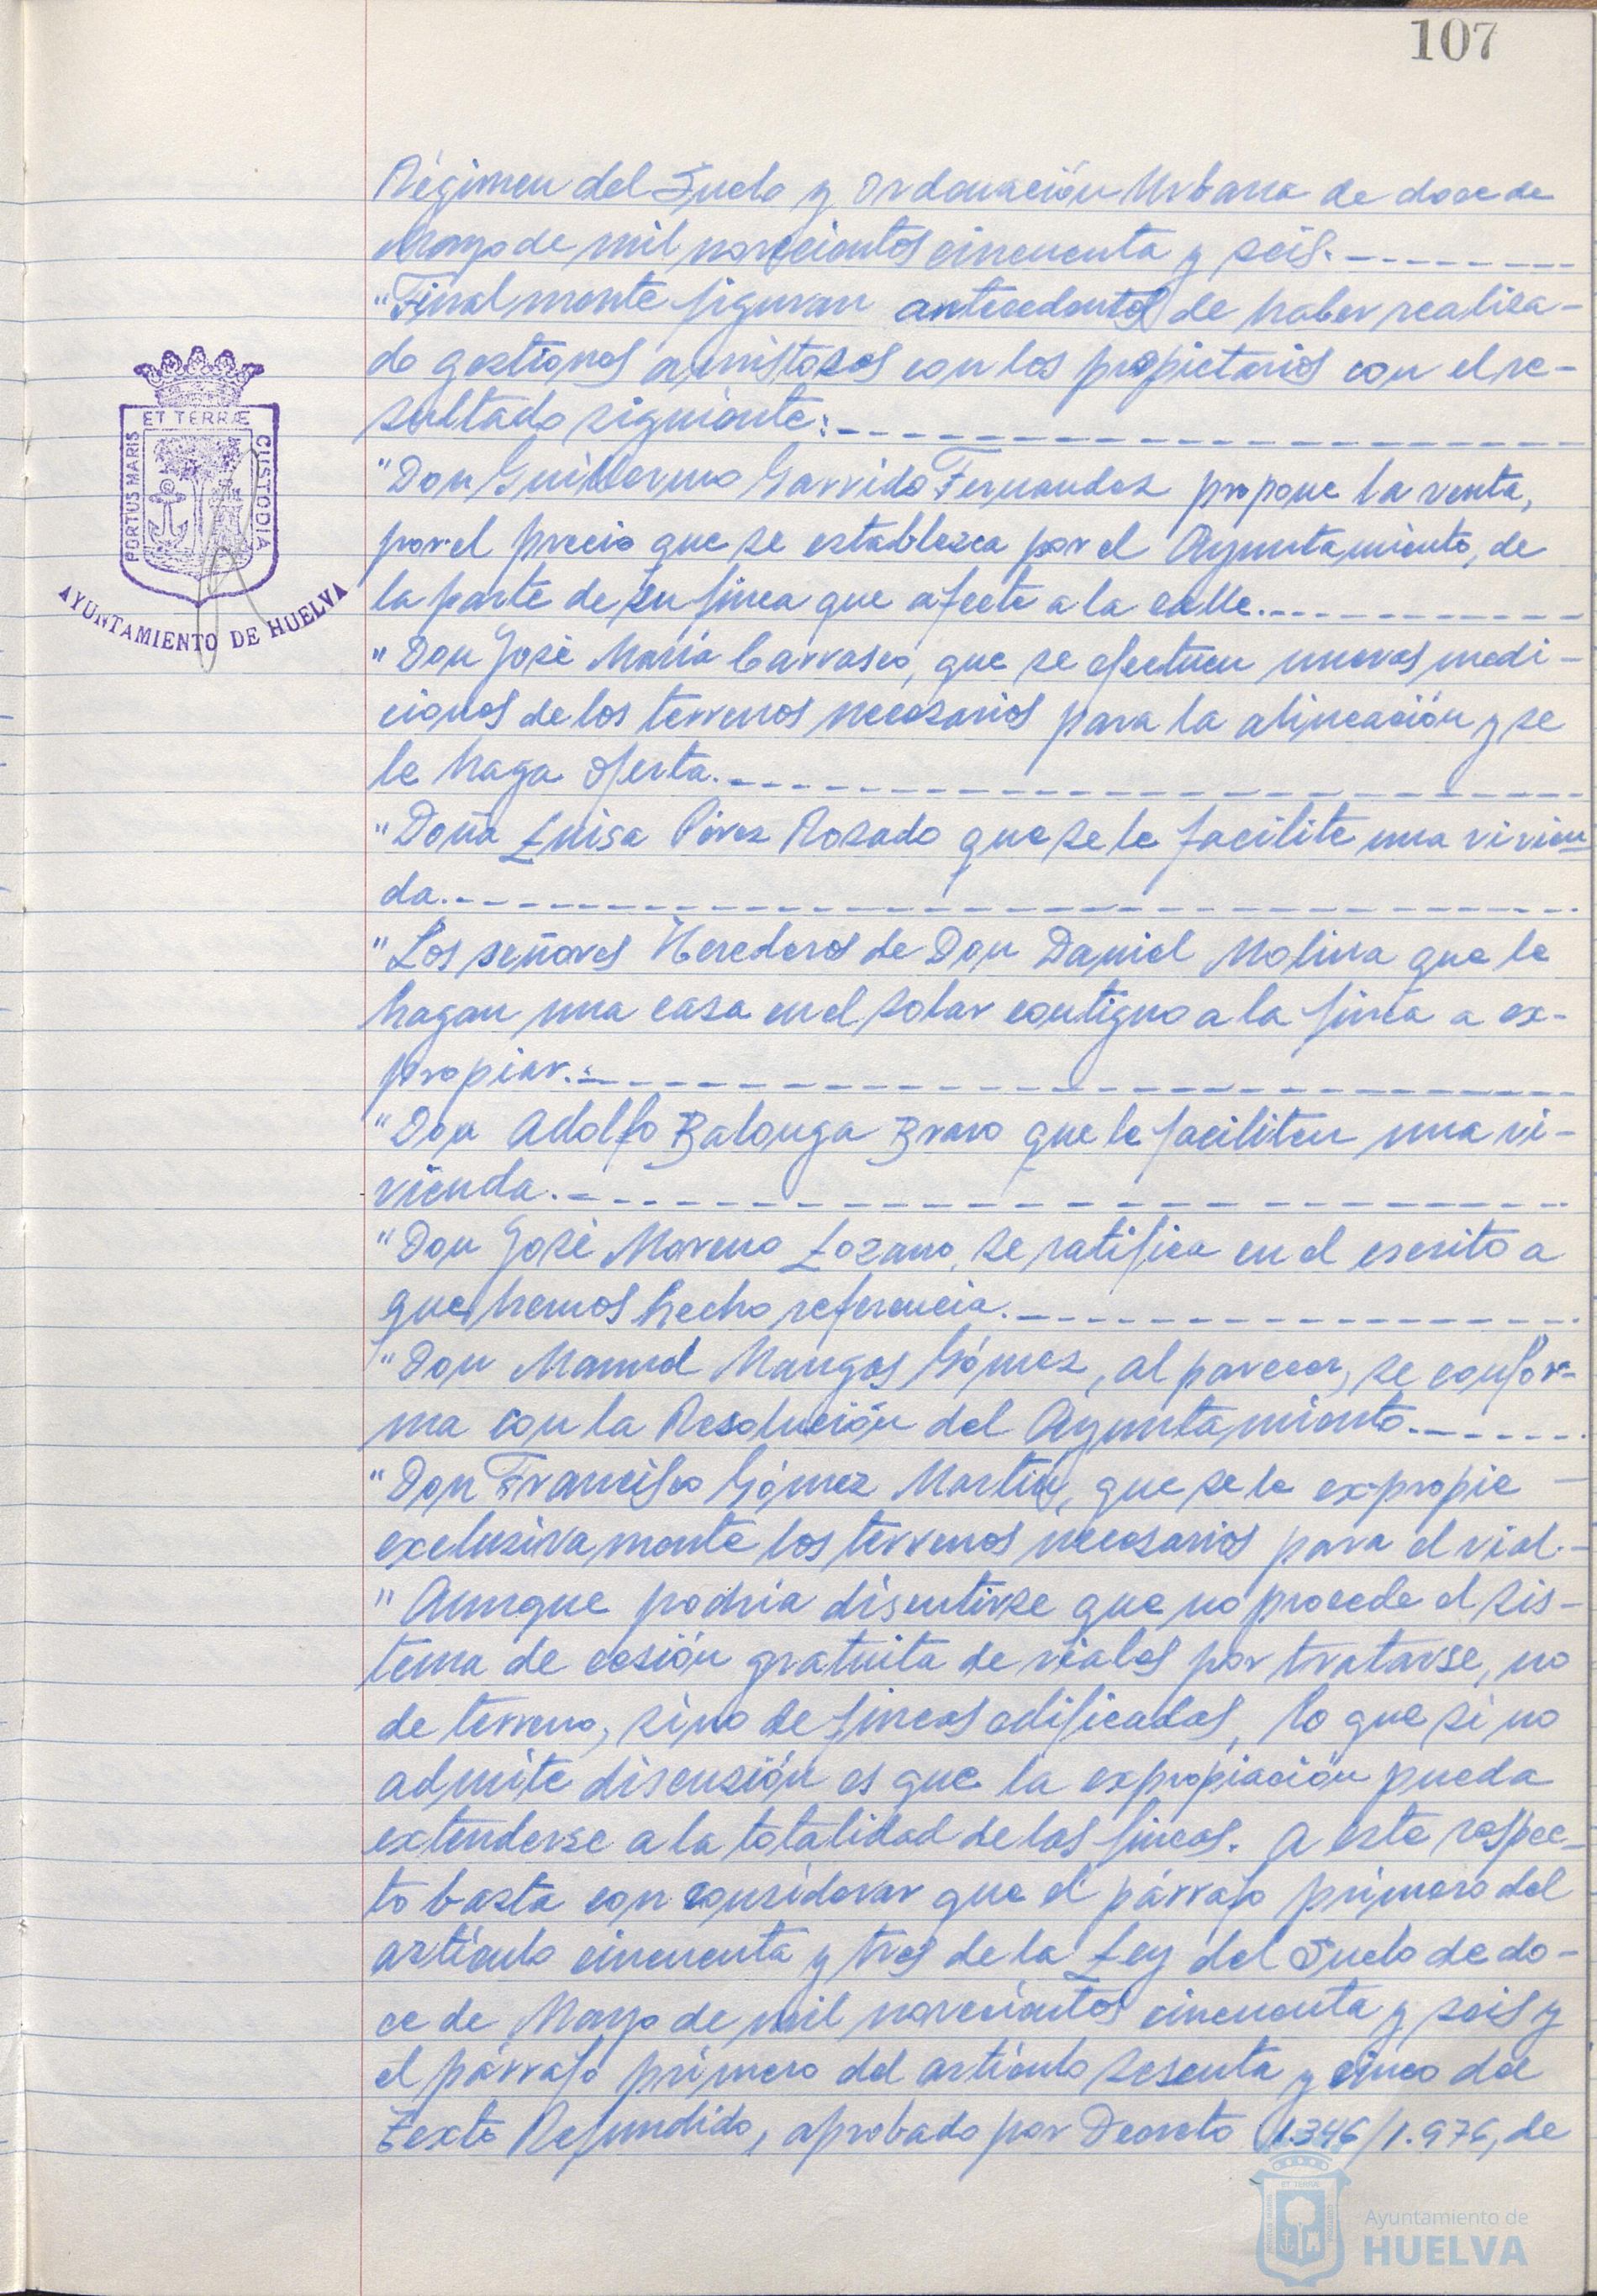 107
Régimen del Suelo y Ordenación Urbana de doce de
Mayo de mil novecientos cincuenta y seis.
"Finalmente figuran antecedentes de haber realiza-
do gestiones amistosas con los propietarios con el re-
sultado siguiente:
"Don Guillermo Garrido Fernandez propone la venta,
por el precio que se establezca por el Ayuntamiento, de
la parte de su finca que afecte a la calle.
"Don José María Carrasco, que se efectúen nuevas medi-
ciones de los terrenos necesarios para la alineación y se
le haga oferta.
"Doña Luisa Pérez Rosado que se le facilite una vivien
da.
"Los señores Herederos de Don Daniel Molina que le
hagan una casa en el solar contiguo a la finca a ex-
propiar.
"Don Adolfo Balonga Bravo que le faciliten una vi-
vienda.
"Don José Moreno Lozano, se ratifica en el escrito a
que hemos hecho referencia.
"Don Manuel Mangas Gómez, al parecer, se confor-
ma con la Resolución del Ayuntamiento.
"Don Francisco Gómez Martín, que se le expropie
exclusivamente los terrenos necesarios para el vial.-
"Aunque podría discutirse que no procede el sis-
tema de cesión gratuita de viales por tratarse, no
de terreno, sino de fincas edificadas, lo que si no
admite discusión es que la expropiación pueda
extenderse a la totalidad de las fincas. A este respec-
to basta con considerar que el párrafo primero del
artículo cincuenta y tres de la Ley del Suelo de do-
ce de Mayo de mil novecientos cincuenta y seis y
el párrafo primero del artículo sesenta y cinco del
Texto Refundido, aprobado por Decreto 1.346/1.976, de
ET TERRÆ
PORTUS MARIS
CUSTODIA
AYUNTAMIENTO DE HUELVA
Ayuntamiento de
HUELVA